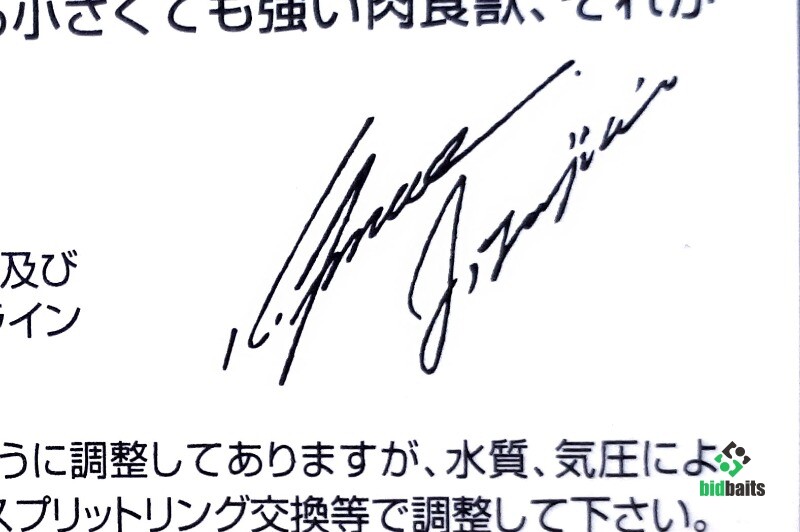 も小さくても強い肉食獣、それが
及び
ライン
うに調整してありますが、水質、気圧によ
スプリットリング交換等で調整して下さい。
bidbaits